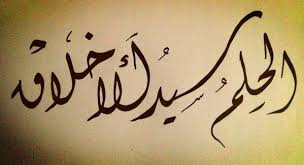 الحِلمُ سيدُ الأخلاق